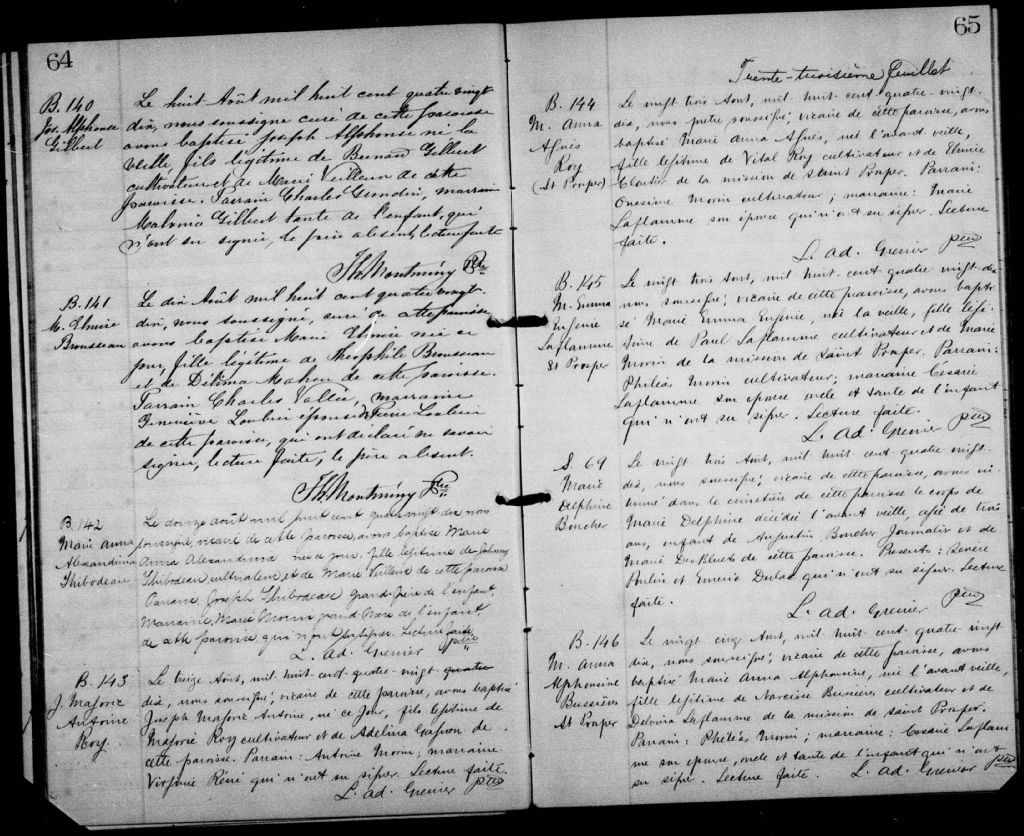 64
B. 140
Jos. Alphonse
Gilbert
Le huit Août mil huit cent quatre vingt
dix, nous soussigné curé de cette paroisse
avons baptisé Joseph Alphonse né la
veille, fils légitime de Bernard Gilbert
cultivateur et de Marie Veilleux de cette
paroisse. Parrain Charles Grondin, marraine
Malvina Gilbert tante de l'enfant, qui
n'ont su signer, le père absent, lecture faite
Th. Montminy Ptre
B. 141
M. Elmire
Brousseau
Le dix Août mil huit cent quatre vingt
dix, nous soussigné, curé de cette paroisse
avons baptisé Marie Elmire née ce
jour, fille légitime de Théophile Brousseau
et de Délima Maheu de cette paroisse.
Parrain Charles Vallée, marraine
Geneviève Loubier épouse de Pierre Loubier
de cette paroisse, qui ont déclaré ne savoir
signer, lecture faite, le père absent.
Th. Montminy Ptre
B. 142
Marie Anna
Alexandrina
Thibodeau
Le douze août mil huit cent quatre vingt dix nous
soussigné, vicaire de cette paroisse, avons baptisé Marie
Anna Alexandrina née ce jour, fille légitime de Johnny
Thibodeau cultivateur et de Marie Veilleux de cette paroisse
Parrain, Joseph Thibodeau grand-père de l'enfant
Marraine, Marie Morin grand-mère de l'enfant
de cette paroisse qui n'ont su signer. Lecture faite
L. Ad. Grenier ptre
B. 143
J. Majoric
Antoine
Roy.
Le treize Août, mil huit cent quatre-vingt quatre
dix, nous soussigné, vicaire de cette paroisse, avons baptisé
Joseph Majoric Antoine, né ce jour, fils légitime de
Majoric Roy cultivateur et de Adelina Gagnon de
cette paroisse. Parrain: Antoine Morin; marraine
Virginie Réni qui n'ont su signer. Lecture faite.
L. Ad. Grenier ptre
65
Trente-troisième feuillet
B. 144
M. Anna
Agnès
Roy
(St Prosper)
Le vingt trois Août, mil huit cent quatre-vingt-
dix, nous prêtre soussigné, vicaire de cette paroisse, avons
baptisé Marie Anna Agnès, née l'avant veille,
fille légitime de Vital Roy cultivateur et de Elmire
Cloutier de la mission de Saint Prosper. Parrain:
Onésime Morin cultivateur; marraine: Marie
Laflamme son épouse qui n'ont su signer. Lecture
faite.
L. Ad. Grenier ptre
B. 145
M. Emma
Eugénie
Laflamme
St Prosper
Le vingt trois Août, mil huit cent quatre vingt-dix
nous soussigné, vicaire de cette paroisse, avons bapti-
sé Marie Emma Eugénie, née la veille, fille légi-
time de Paul Laflamme cultivateur et de Marie
Morin de la mission de Saint Prosper. Parrain:
Philéas Morin cultivateur; marraine Césarie
Laflamme son épouse oncle et tante de l'enfant
qui n'ont su signer. Lecture faite.
L. Ad. Grenier ptre
S. 69
Marie
Delphine
Boucher
Le vingt trois Août, mil huit cent quatre vingt-
dix, nous soussigné, vicaire de cette paroisse, avons in-
humé dans le cimetière de cette paroisse le corps de
Marie Delphine décédée l'avant veille, agée de trois
ans, enfant de Augustin Boucher Journalier et de
Marie Des Bluets de cette paroisse. Présents: Sévère
Poulin et Dulac qui n'ont su signer. Lecture
faite.
L. Ad. Grenier ptre
B. 146
M. Anna
Alphonsine
Bussières
St Prosper
Le vingt cinq Août, mil huit cent quatre vingt
dix, nous soussigné, vicaire de cette paroisse, avons
baptisé Marie Anna Alphonsine, née l'avant veille,
fille légitime de Narcisse Bussières cultivateur et de
Delvina Laflamme de la mission de Saint Prosper.
Parrain: Philéas Morin; marraine: Césarie Laflam-
me son épouse, oncle et tante de l'enfant qui n'ont
su signer. Lecture faite. L. Ad. Grenier ptre